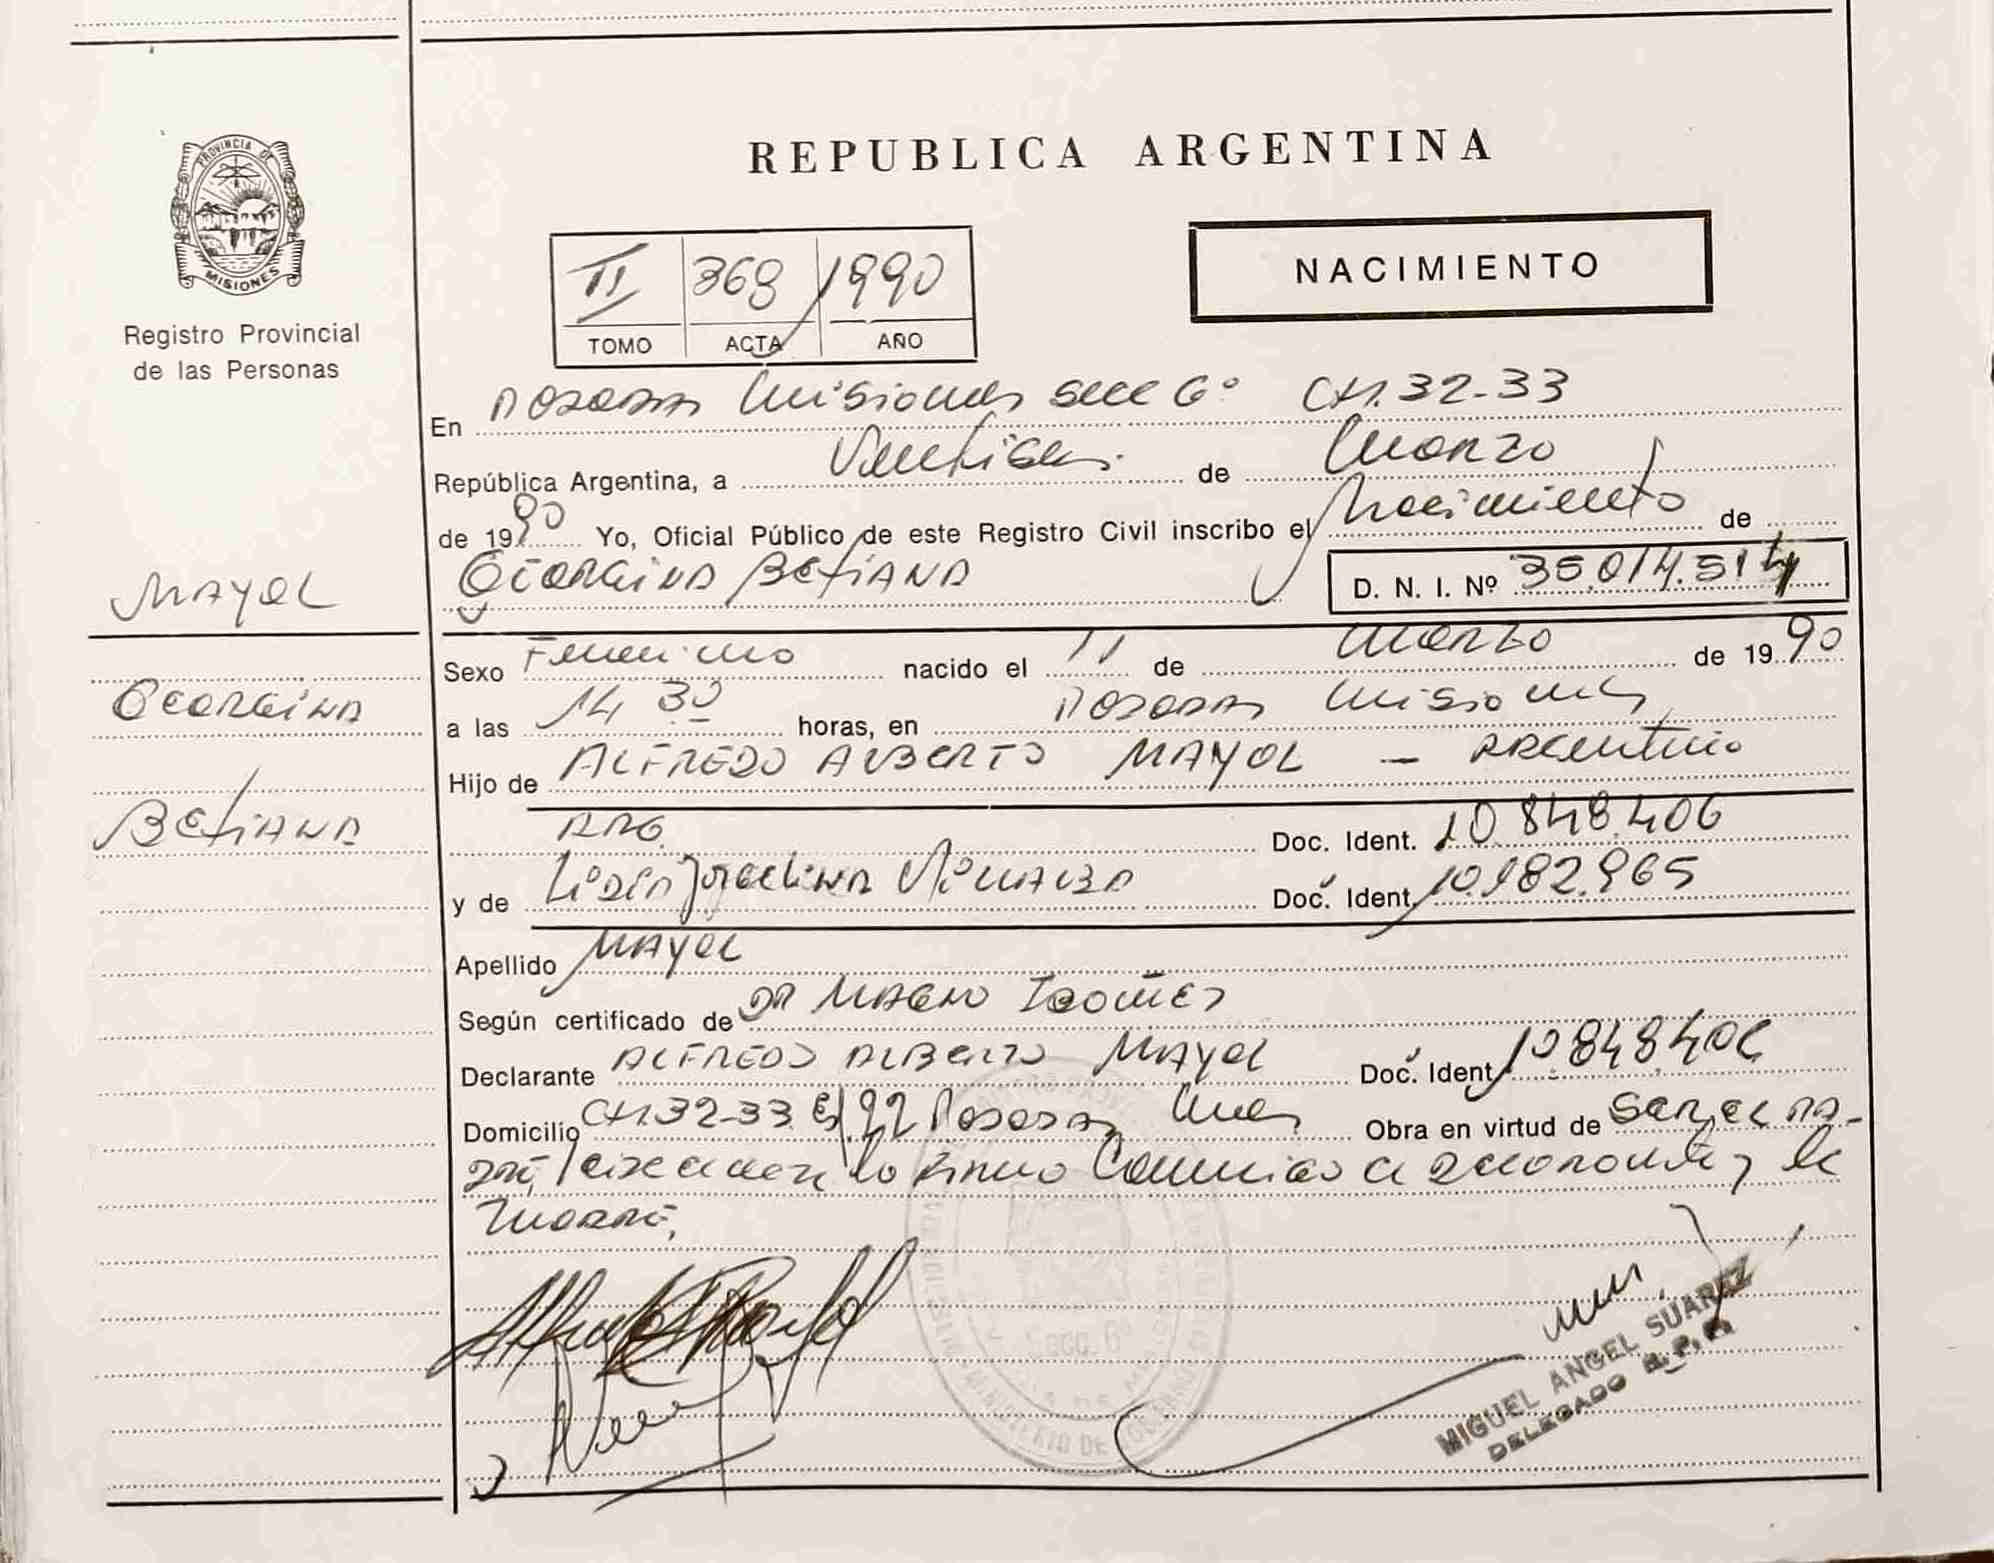 REPUBLICA ARGENTINA
PROVINCIA DE
MISIONES
Registro Provincial
de las Personas
II 369 1990
TOMO ACTA AÑO
NACIMIENTO
En Posadas Misiones Secc 6° CH. 32-33
República Argentina, a de Marzo
de 1990 Yo, Oficial Público de este Registro Civil inscribo el Nacimiento de
Georgina Betiana D. N. I. Nº 35.014.514
MAYOL
Georgina
Betiana
Sexo Femenino nacido el 11 de Marzo de 1990
a las 14 30 horas, en Posadas Misiones
Hijo de ALFREDO ALBERTO MAYOL — Argentino
ARG. Doc. Ident. 10.848.406
y de Doc. Ident. 10.982.965
Apellido MAYOL
Según certificado de DR MAGNO
Declarante ALFREDO ALBERTO MAYOL Doc. Ident. 10.848.406
Domicilio CH. 32-33 Posadas Mnes Obra en virtud de Ser el pa-
dre, firmo Conmigo el declarante y la
madre,
SECC. 6ª
MINISTERIO DE GOBIERNO
MIGUEL ANGEL SUAREZ
DELEGADO R. P. P.